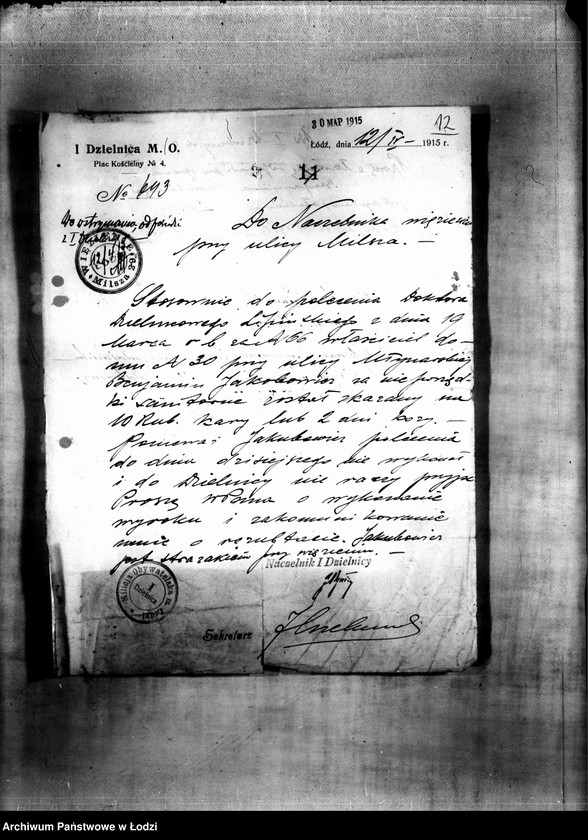 30 МАР 1915
12
I Dzielnica M. O.
Plac Kościelny № 4.
Łódź, dnia 12/IV – 1915 r.
11
№ 193
Do wstrzymania, odpowiedzi
z I
Milsza
Do Naczelnika więzienia
przy ulicy Milsza. —
Stosownie do polecenia Doktora
Dzielnicowego Lipińskiego z dnia 19
Marca r b za № 66 właściciel do-
mu № 30 przy ulicy Młynarskiej
Benjamin Jakubowicz za nieporząd-
ki sanitarne został skazany na
10 Rub. kary lub 2 dni kozy. —
Ponieważ Jakubowicz polecenia
do dnia dzisiejszego nie wykonał
i do Dzielnicy nie raczy przyjść
Proszę WPana o wykonanie
wyroku i zakomunikowanie
mnie o rezultacie. Jakubowicz
jest strażakiem przy więzieniu. —
Naczelnik I Dzielnicy
Milicja Obywatelska m. Łodzi
I
Dzielnica
Sekretarz
Archiwum Państwowe w Łodzi